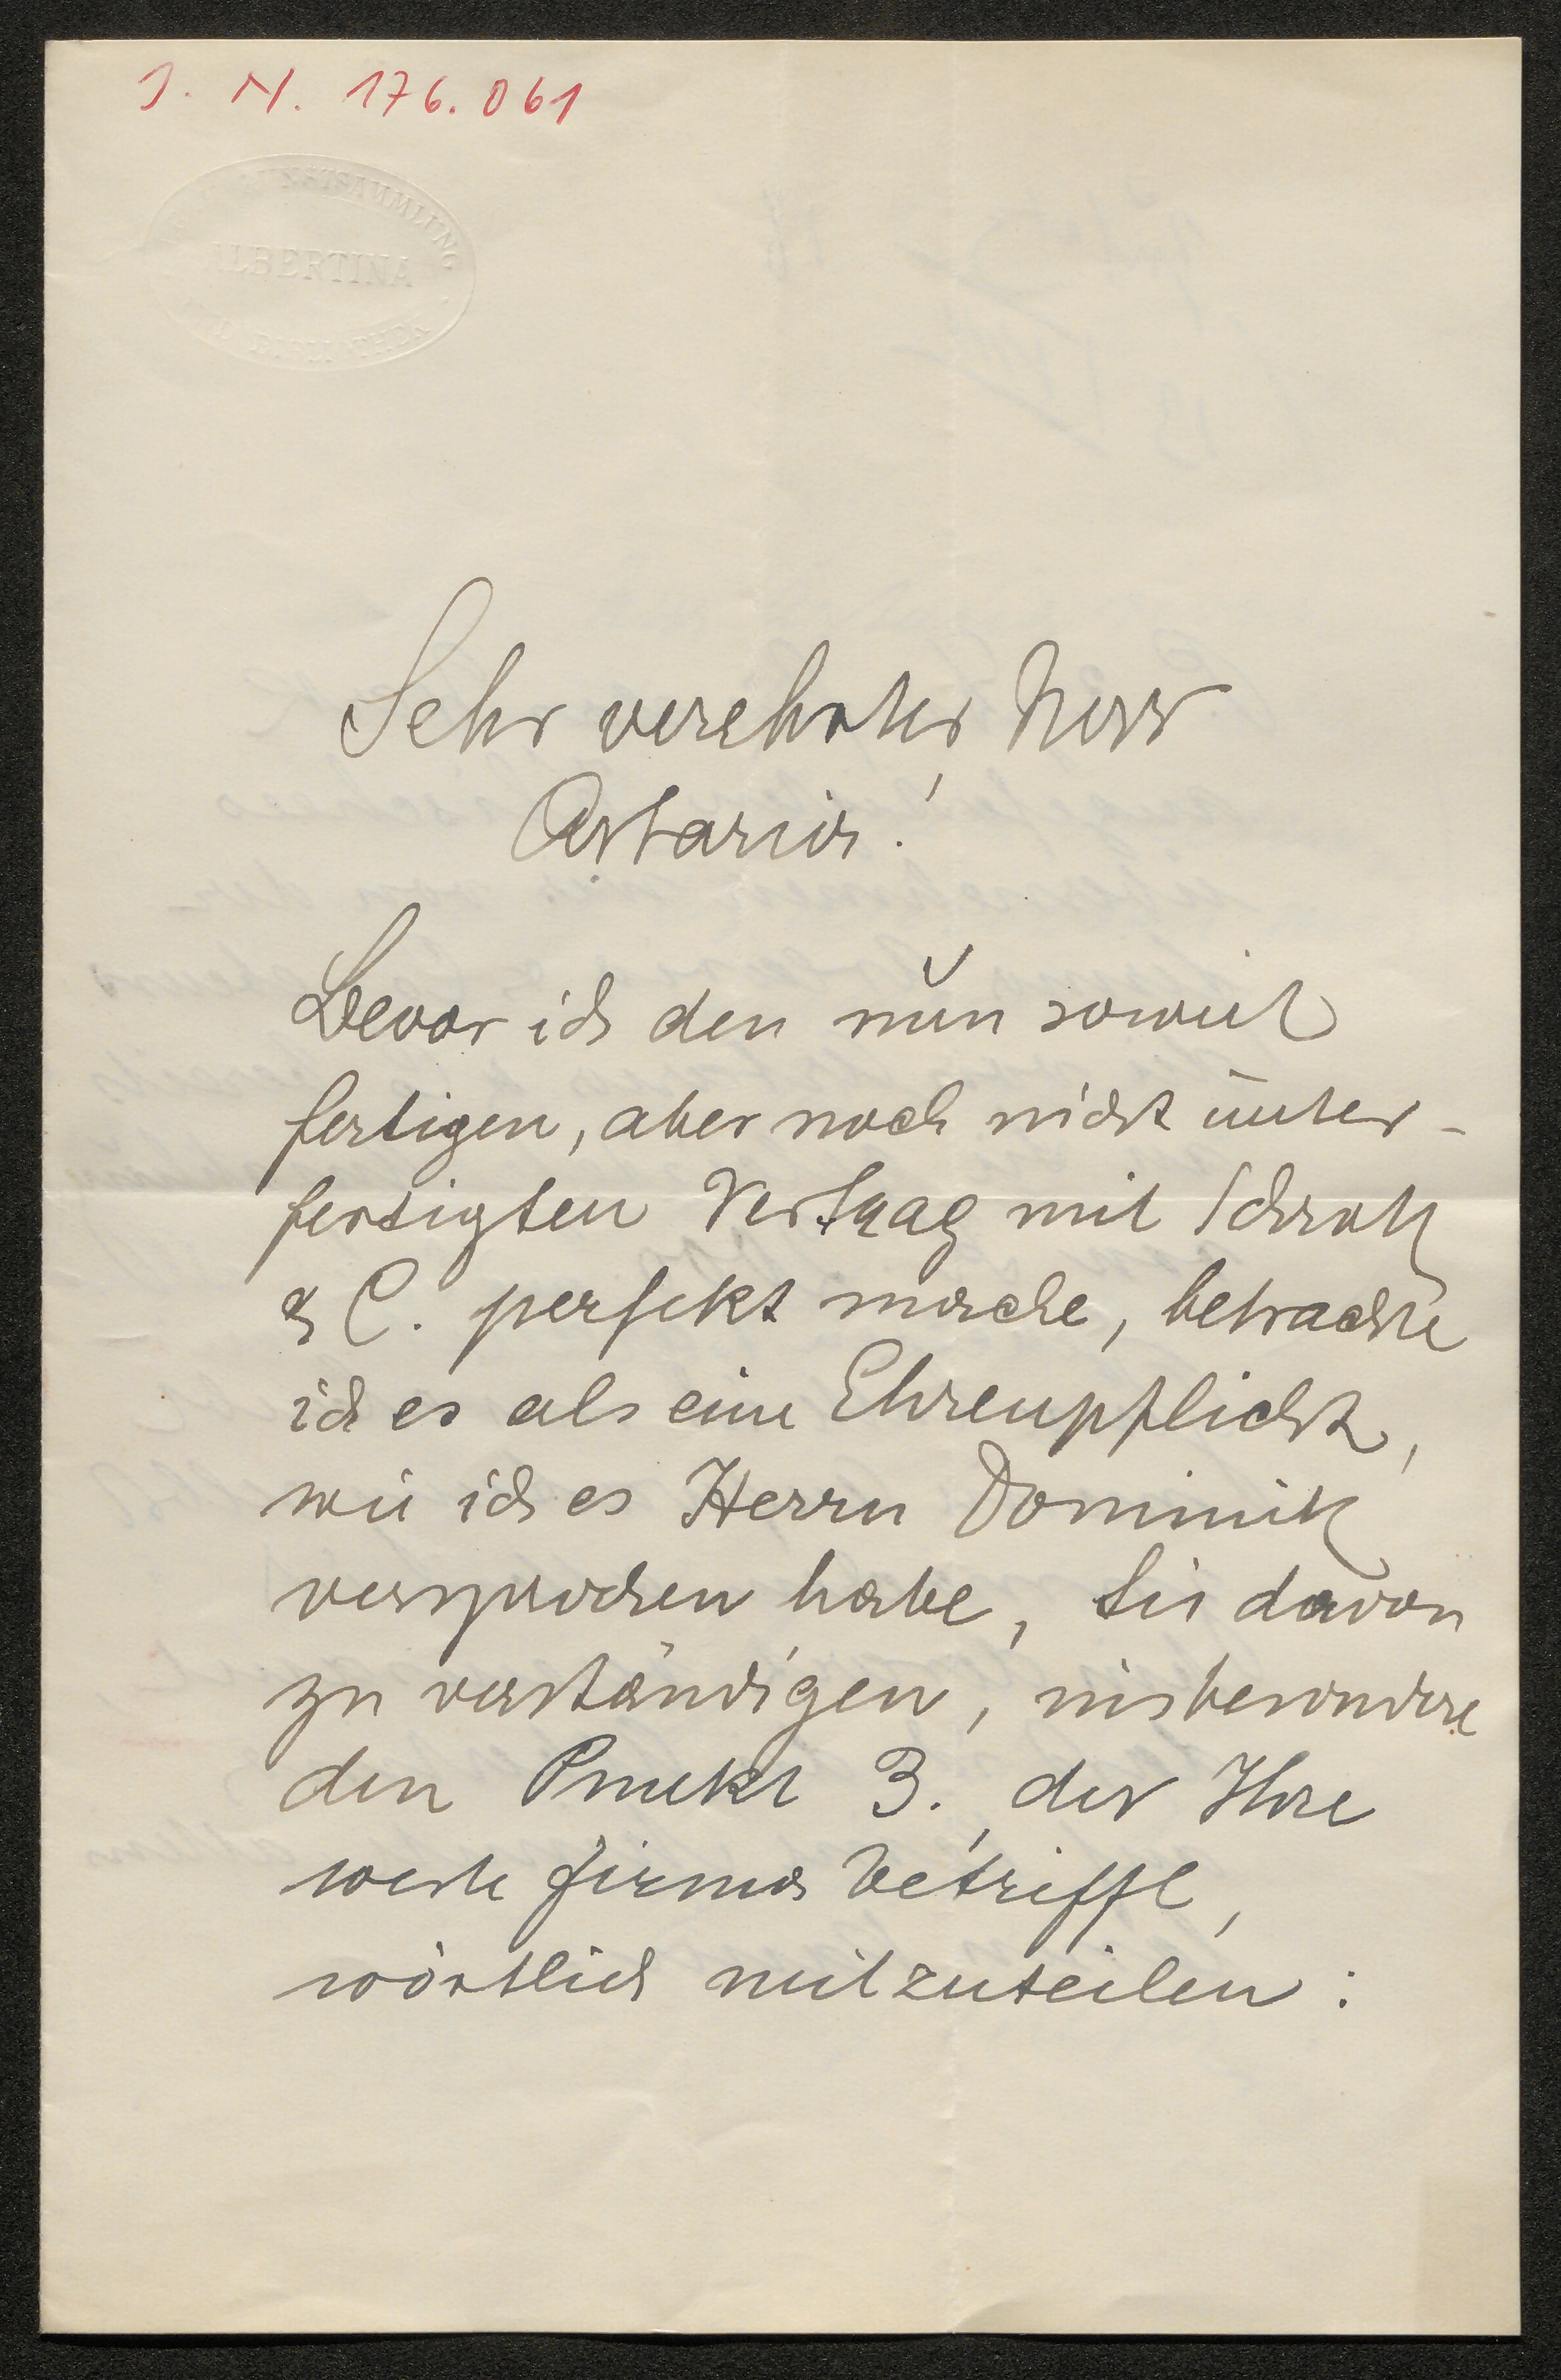 J. N. 176.061
KUNSTSAMMLUNG
ALBERTINA
Sehr verehrter Herr
Artaria!
Bevor ich den nun soweit
fertigen, aber noch nicht unter-
fertigten Vertrag mit Schroll
& C. perfekt mache, betrachte
ich es als eine Ehrenpflicht,
wie ich es Herrn Dominik
versprochen habe, Sie davon
zu verständigen, insbesondere
den Punkt 3., der Ihre
werte Firma betrifft,
wörtlich mitzuteilen: